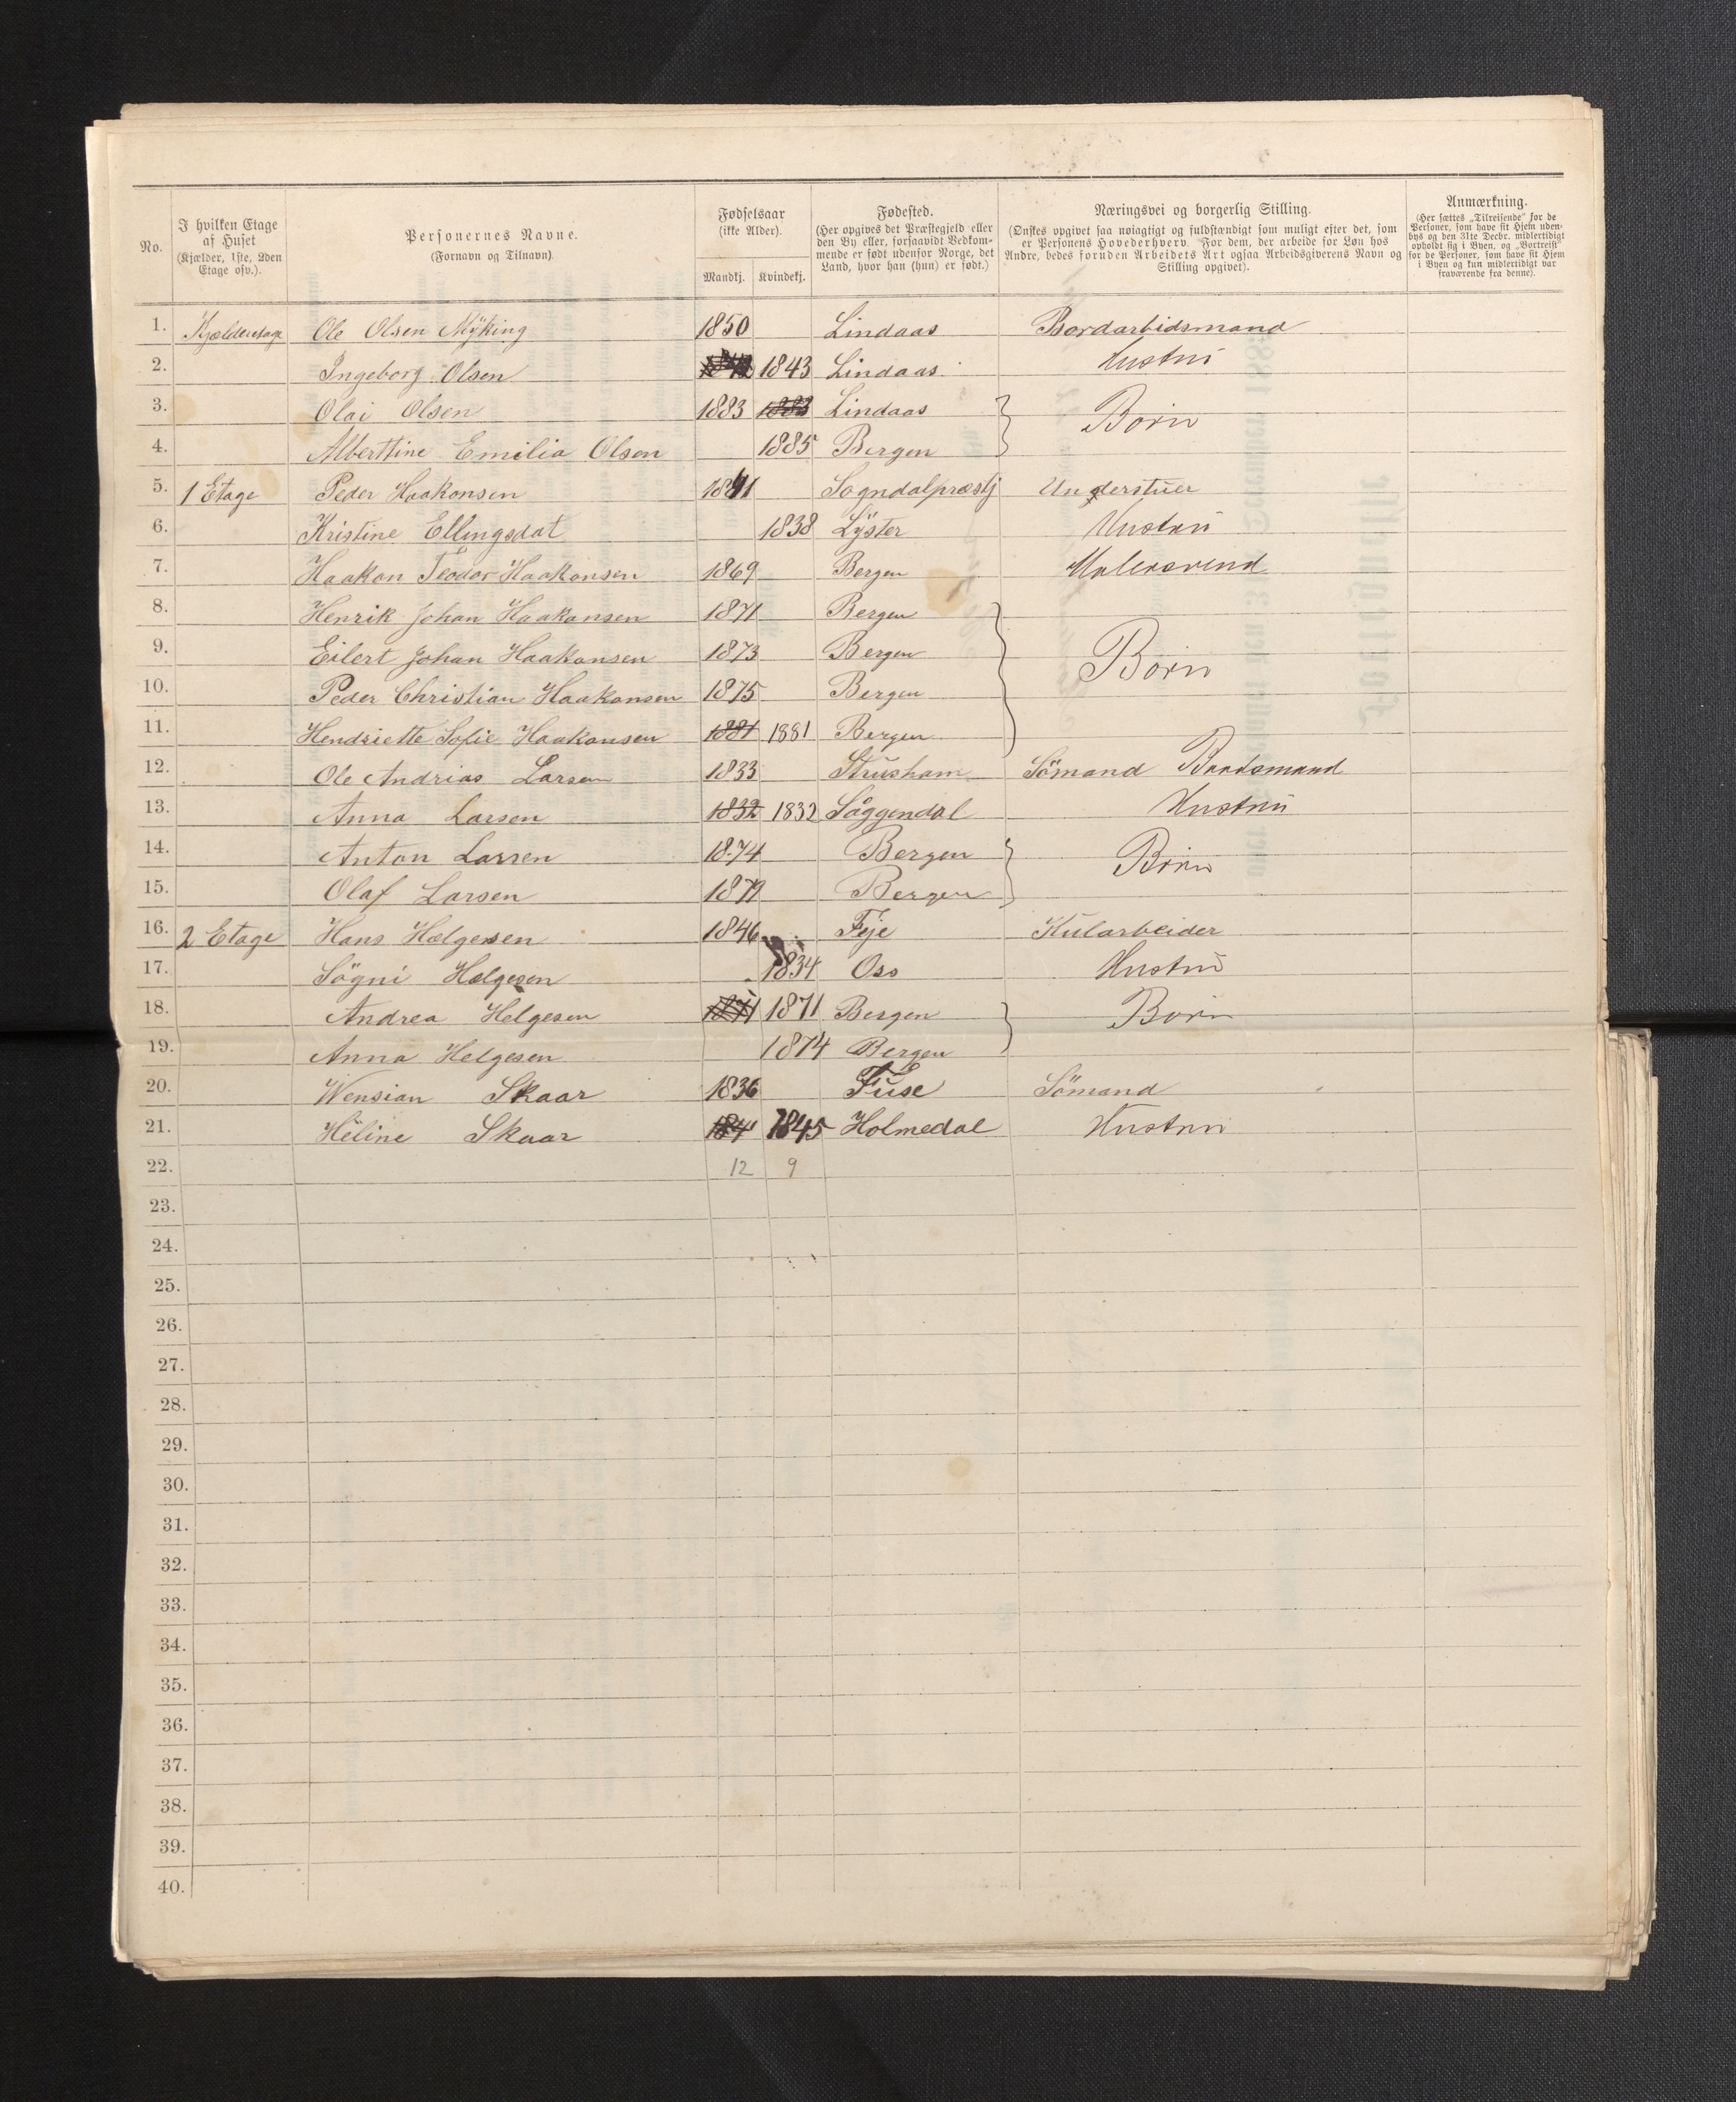 No. I hvilken Etage af Huset (Kjælder, 1ste, 2den Etage osv.). Personernes Navne. (Fornavn og Tilnavn) Fødselsaar (ikke Alder). Mandkj. Kvindekj. Fødested. (Her opgives det Præstegjeld eller den By eller, forsaavidt Vedkommende er født udenfor Norge, det Land, hvor han (hun) er født.) Næringsvei og borgerlig Stilling. (Ønskes opgivet saa nøiagtigt og fuldstændigt som muligt efter det, som er Personens Hovederhverv. For dem, der arbeide for Løn hos Andre, bedes foruden Arbeidets Art ogsaa Arbeidsgiverens Navn og Stilling opgivet). Anmærkning. (Her sættes „Tilreisende" for de Personer, som have sit Hjem udenbys og den 31te Decbr. midlertidigt opholdt sig i Byen, og „Bortreist" for de Personer, som have sit Hjem i Byen og kun midlertidigt var fraværende fra denne).
1. Kjælderetage Ole Olsen Mÿking 1850 Lindaas Bordarbidsmand
2. Ingeborg Olsen 1843 Lindaas Hustru
3. Olai Olsen 1883 1883 Lindaas } Børn
4. Alberttine Emilia Olsen 1885 Bergen
5. 1 Etage Peder Haakonsen 1841 Sogndalpræstj Understuer
6. Kristine Ellingsdat 1838 Lÿster Hustru
7. Haakon Teodor Haakonsen 1869 Bergen Malersvend
8. Henrik Johan Haakonsen 1871 Bergen
9. Eilert Johan Haakonsen 1873 Bergen } Børn
10. Peder Christian Haakonsen 1875 Bergen
11. Hendriette Sofie Haakonsen 1881 1881 Bergen
12. Ole Andrias Larsen 1833 Strusham Sömand Baadsmand
13. Anna Larsen 1832 1832 Såggendal Hustru
14. Anton Larsen 1874 Bergen } Børn
15. Olaf Larsen 1879 Bergen
16. 2 Etage Hans Hælgesen 1846 Feje Kularbeider
17. Sögni Hælgesen 1834 Oss Hustru
18. Andrea Helgesen 1871 1871 Bergen } Børn
19. Anna Helgesen 1874 Bergen
20. Wensian Skaar 1836 Fuse Sömand
21. Heline Skaar 184 1845 Holmedal Hustru
22. 12 9
23.
24.
25.
26.
27.
28.
29.
30.
31.
32.
33.
34.
35.
36.
37.
38.
39.
40.